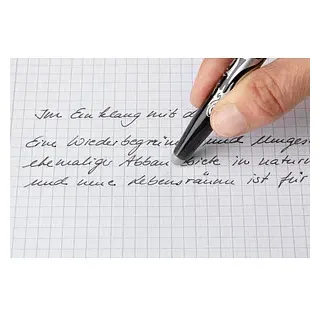 Im Einklang mit d
Eine Wiederbegrün und Umges
ehemaliger Abbau biete in natur
und neue Lebensräume ist für